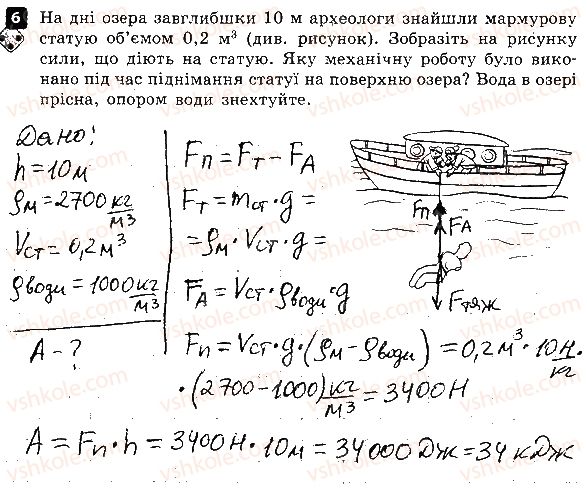 6 На дні озера завглибшки 10 м археологи знайшли мармурову
статую об'ємом 0,2 м³ (див. рисунок). Зобразіть на рисунку
сили, що діють на статую. Яку механічну роботу було вико-
нано під час піднімання статуї на поверхню озера? Вода в озері
прісна, опором води знехтуйте.
Дано:
h = 10 м
ρм = 2700 кг/м³
Vст = 0,2 м³
ρводи = 1000 кг/м³
A - ?
Fп = Fт − FA
Fт = mст · g =
= ρм · Vст · g =
FA = Vст · ρводи · g
Fп
FA
Fтяж
Fп = Vст · g · (ρм − ρводи) = 0,2 м³ · 10 Н/кг ·
· (2700 − 1000) кг/м³ = 3400 Н
A = Fп · h = 3400 Н · 10 м = 34000 Дж = 34 кДж
vshkole.com